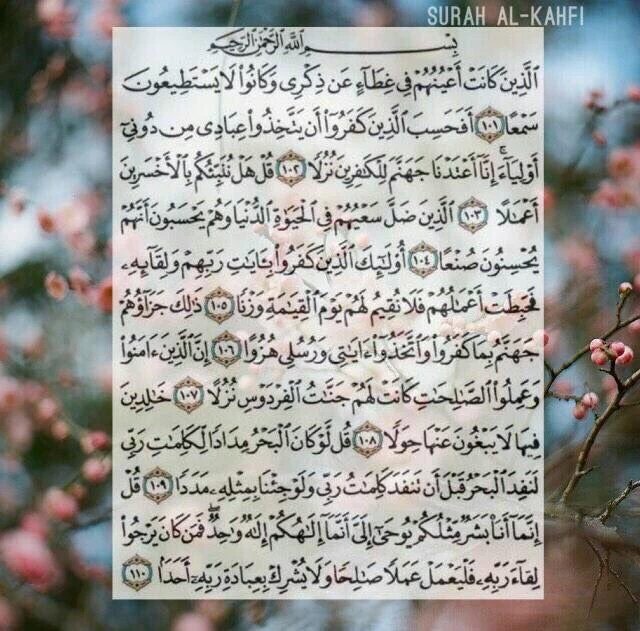 SURAH AL-KAHFI
بِسْمِ اللَّهِ الرَّحْمَٰنِ الرَّحِيمِ
الَّذِينَ كَانَتْ أَعْيُنُهُمْ فِي غِطَاءٍ عَن ذِكْرِي وَكَانُوا لَا يَسْتَطِيعُونَ
سَمْعًا ١٠١ أَفَحَسِبَ الَّذِينَ كَفَرُوا أَن يَتَّخِذُوا عِبَادِي مِن دُونِي
أَوْلِيَاءَ ۚ إِنَّا أَعْتَدْنَا جَهَنَّمَ لِلْكَافِرِينَ نُزُلًا ١٠٢ قُلْ هَلْ نُنَبِّئُكُم بِالْأَخْسَرِينَ
أَعْمَالًا ١٠٣ الَّذِينَ ضَلَّ سَعْيُهُمْ فِي الْحَيَاةِ الدُّنْيَا وَهُمْ يَحْسَبُونَ أَنَّهُمْ
يُحْسِنُونَ صُنْعًا ١٠٤ أُولَٰئِكَ الَّذِينَ كَفَرُوا بِآيَاتِ رَبِّهِمْ وَلِقَائِهِ
فَحَبِطَتْ أَعْمَالُهُمْ فَلَا نُقِيمُ لَهُمْ يَوْمَ الْقِيَامَةِ وَزْنًا ١٠٥ ذَٰلِكَ جَزَاؤُهُمْ
جَهَنَّمُ بِمَا كَفَرُوا وَاتَّخَذُوا آيَاتِي وَرُسُلِي هُزُوًا ١٠٦ إِنَّ الَّذِينَ آمَنُوا
وَعَمِلُوا الصَّالِحَاتِ كَانَتْ لَهُمْ جَنَّاتُ الْفِرْدَوْسِ نُزُلًا ١٠٧ خَالِدِينَ
فِيهَا لَا يَبْغُونَ عَنْهَا حِوَلًا ١٠٨ قُل لَّوْ كَانَ الْبَحْرُ مِدَادًا لِّكَلِمَاتِ رَبِّي
لَنَفِدَ الْبَحْرُ قَبْلَ أَن تَنفَدَ كَلِمَاتُ رَبِّي وَلَوْ جِئْنَا بِمِثْلِهِ مَدَدًا ١٠٩ قُلْ
إِنَّمَا أَنَا بَشَرٌ مِّثْلُكُمْ يُوحَىٰ إِلَيَّ أَنَّمَا إِلَٰهُكُمْ إِلَٰهٌ وَاحِدٌ ۖ فَمَن كَانَ يَرْجُوا
لِقَاءَ رَبِّهِ فَلْيَعْمَلْ عَمَلًا صَالِحًا وَلَا يُشْرِكْ بِعِبَادَةِ رَبِّهِ أَحَدًا ١١٠